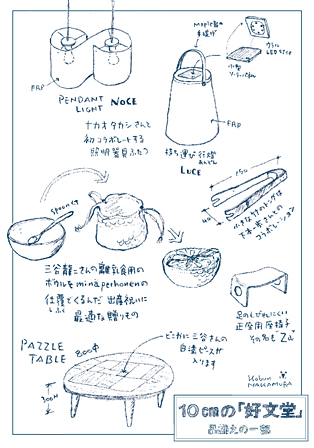 maple製の
手提げ
うらに
LEDライト
小型
ソーラーパネル
FRP
FRP
PENDANT
LIGHT NOCE
ナカオタカシさんと
初コラボレートする
照明器具ふたつ
持ち運び行燈
あんどん
LUCE
150
40
小さな竹のトングは
下本一歩さんとの
コラボレーション
spoonも
三谷龍二さんの離乳食用の
ボウルをminä perhonenの
仕覆でくるんだ出産祝いに
しふく
最適な贈りもの
足のしびれにくい
正座用座椅子
その名も"Za"
PAZZLE
TABLE
800φ
300H
どこかに三谷さんの
白漆ピースが
入ります
Koban
NAKAMURA
10cmの「好文堂」
品揃えの一部